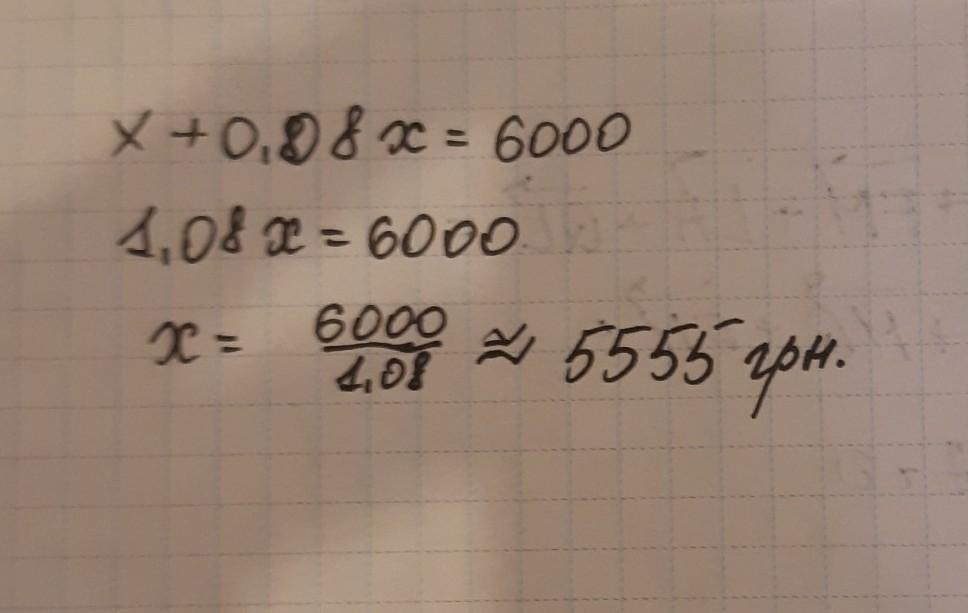 x + 0,08x = 6000
1,08x = 6000
x = 6000/1,08 ≈ 5555 грн.